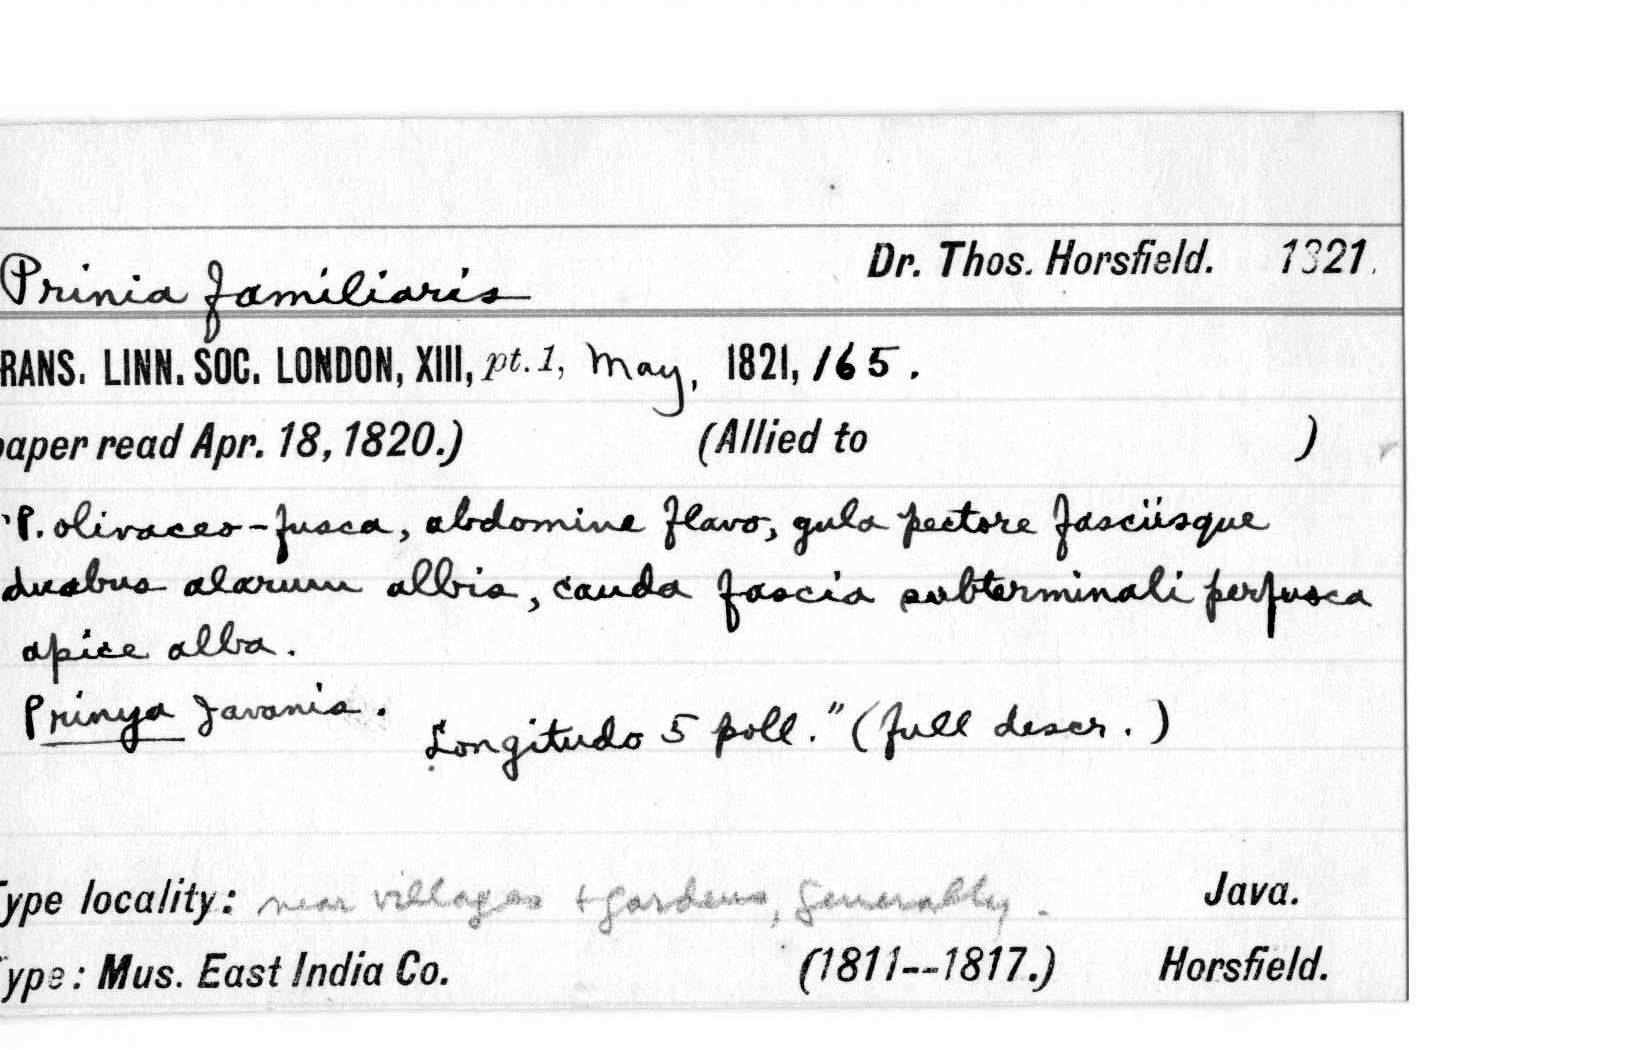 Prinia familiaris Dr. Thos. Horsfield. 1821.
RANS. LINN. SOC. LONDON, XIII, pt. 1, May, 1821, 165.
paper read Apr. 18, 1820.) (Allied to )
"P. olivaceo-fusca, abdomine flavo, gula pectore fasciisque
duabus alarum albis, cauda fascia subterminali perfusca
apice alba.
Prinya Javanis.
Longitudo 5 poll." (full descr.)
Type locality: near villages + gardens, generally. Java.
Type: Mus. East India Co. (1811--1817.) Horsfield.